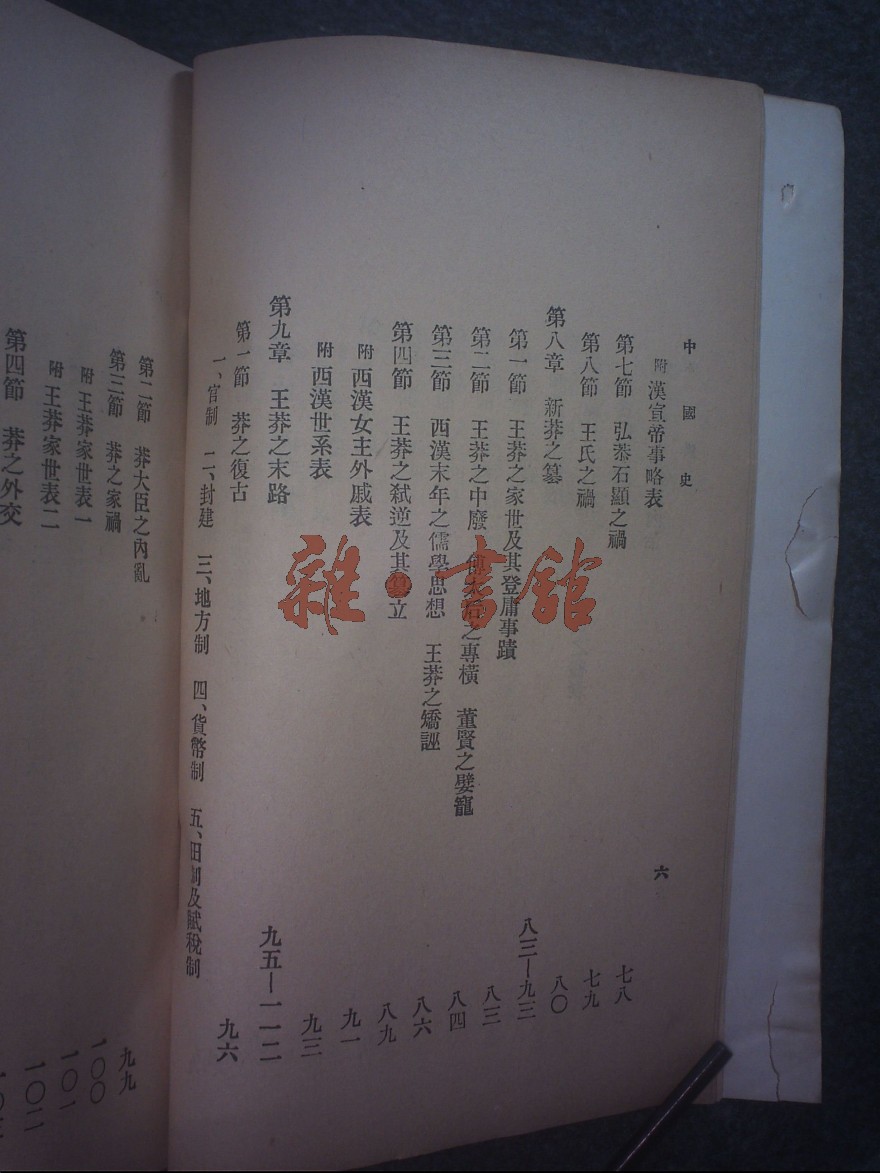 中國史 六
附 漢宣帝事略表 七八
第七節 弘恭石顯之禍 七九
第八節 王氏之禍 八〇
第八章 新莽之篡 八三—九三
第一節 王莽之家世及其登庸事蹟 八三
第二節 王莽之中廢 傅太后之專橫 董賢之嬖寵 八四
第三節 西漢末年之儒學思想 王莽之矯誣 八六
第四節 王莽之弒逆及其篡立 八九
附 西漢女主外戚表 九一
附 西漢世系表 九三
第九章 王莽之末路 九五—一一二
第一節 莽之復古 九六
一、官制 二、封建 三、地方制 四、貨幣制 五、田制及賦稅制
第二節 莽大臣之內亂 九九
第三節 莽之家禍 一〇〇
附 王莽家世表一 一〇一
附 王莽家世表二 一〇二
第四節 莽之外交
雜·書館